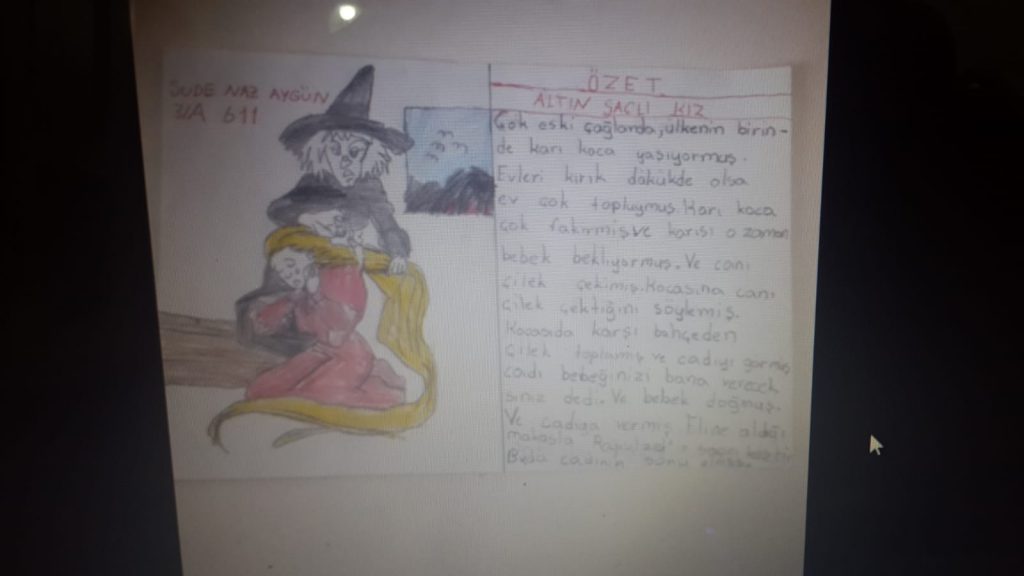 SUDE NAZ AYGÜN
3/A 611
ÖZET
ALTIN SAÇLI KIZ
Çok eski çağlarda, ülkenin birin-
de karı koca yaşıyormuş.
Evleri kırık dökükde olsa
ev çok topluymuş. Karı koca
çok fakirmiş ve karısı o zaman
bebek bekliyormuş. Ve canı
çilek çekimiş. Kocasına canı
çilek çektiğini söylemiş.
Kocasıda karşı bahçeden
çilek toplamış ve cadıyı görmüş
cadı bebeğinizi bana verecek
siniz dedi. Ve bebek doğmuş.
Ve cadıya vermiş Eline aldığı
makasla
Buda cadının sonu olmuş.